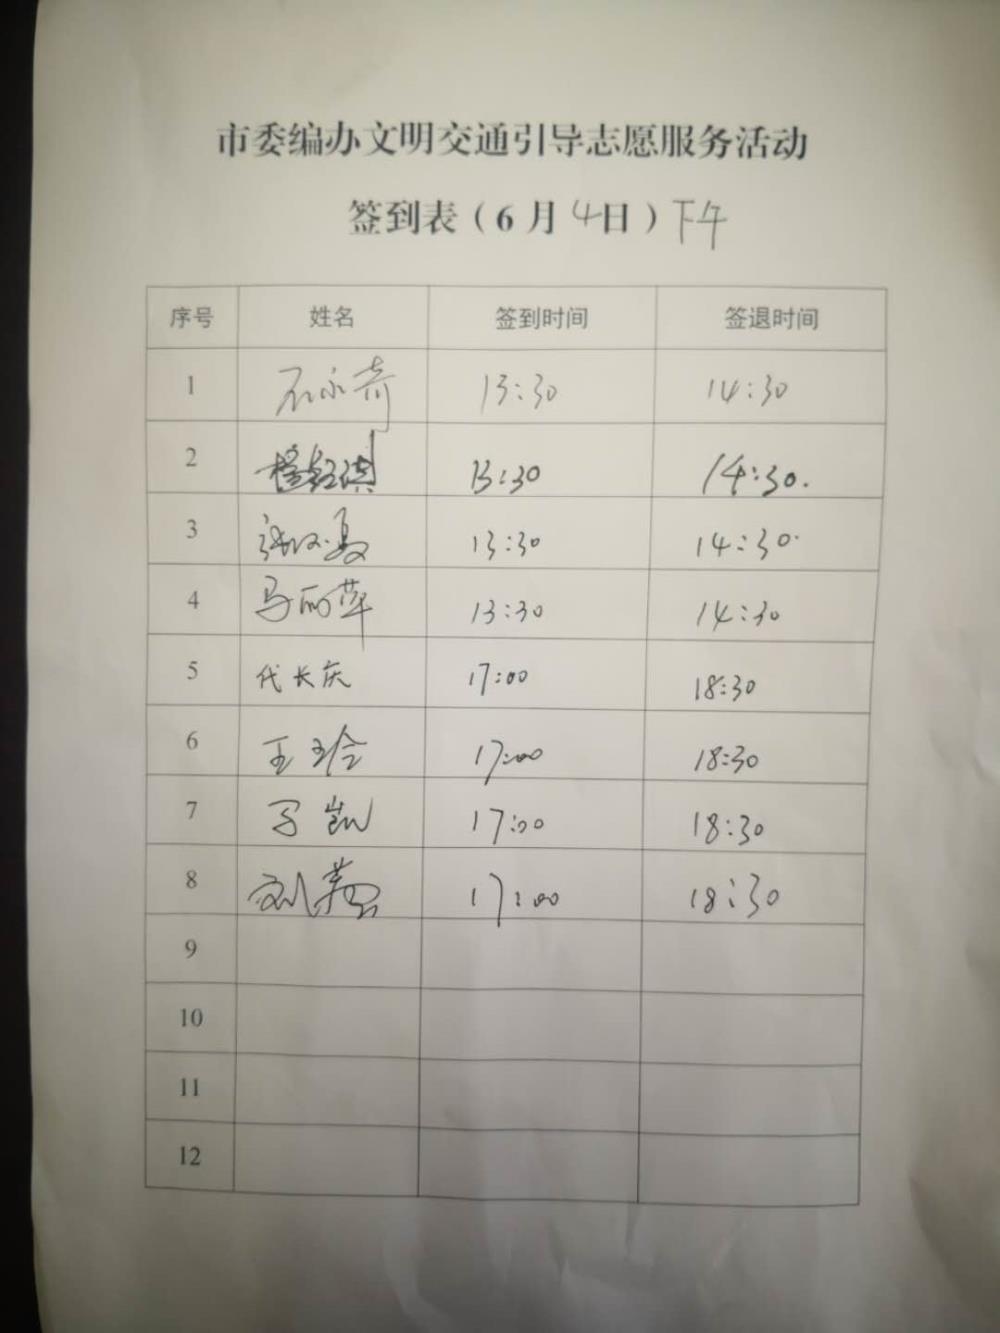 市委编办文明交通引导志愿服务活动
签到表（6月4日）下午
序号 姓名 签到时间 签退时间
1 石永奇 13:30 14:30
2 13:30 14:30.
3 13:30 14:30.
4 马丽萍 13:30 14:30
5 代长庆 17:00 18:30
6 王玲 17:00 18:30
7 马凯 17:00 18:30
8 17:00 18:30
9
10
11
12